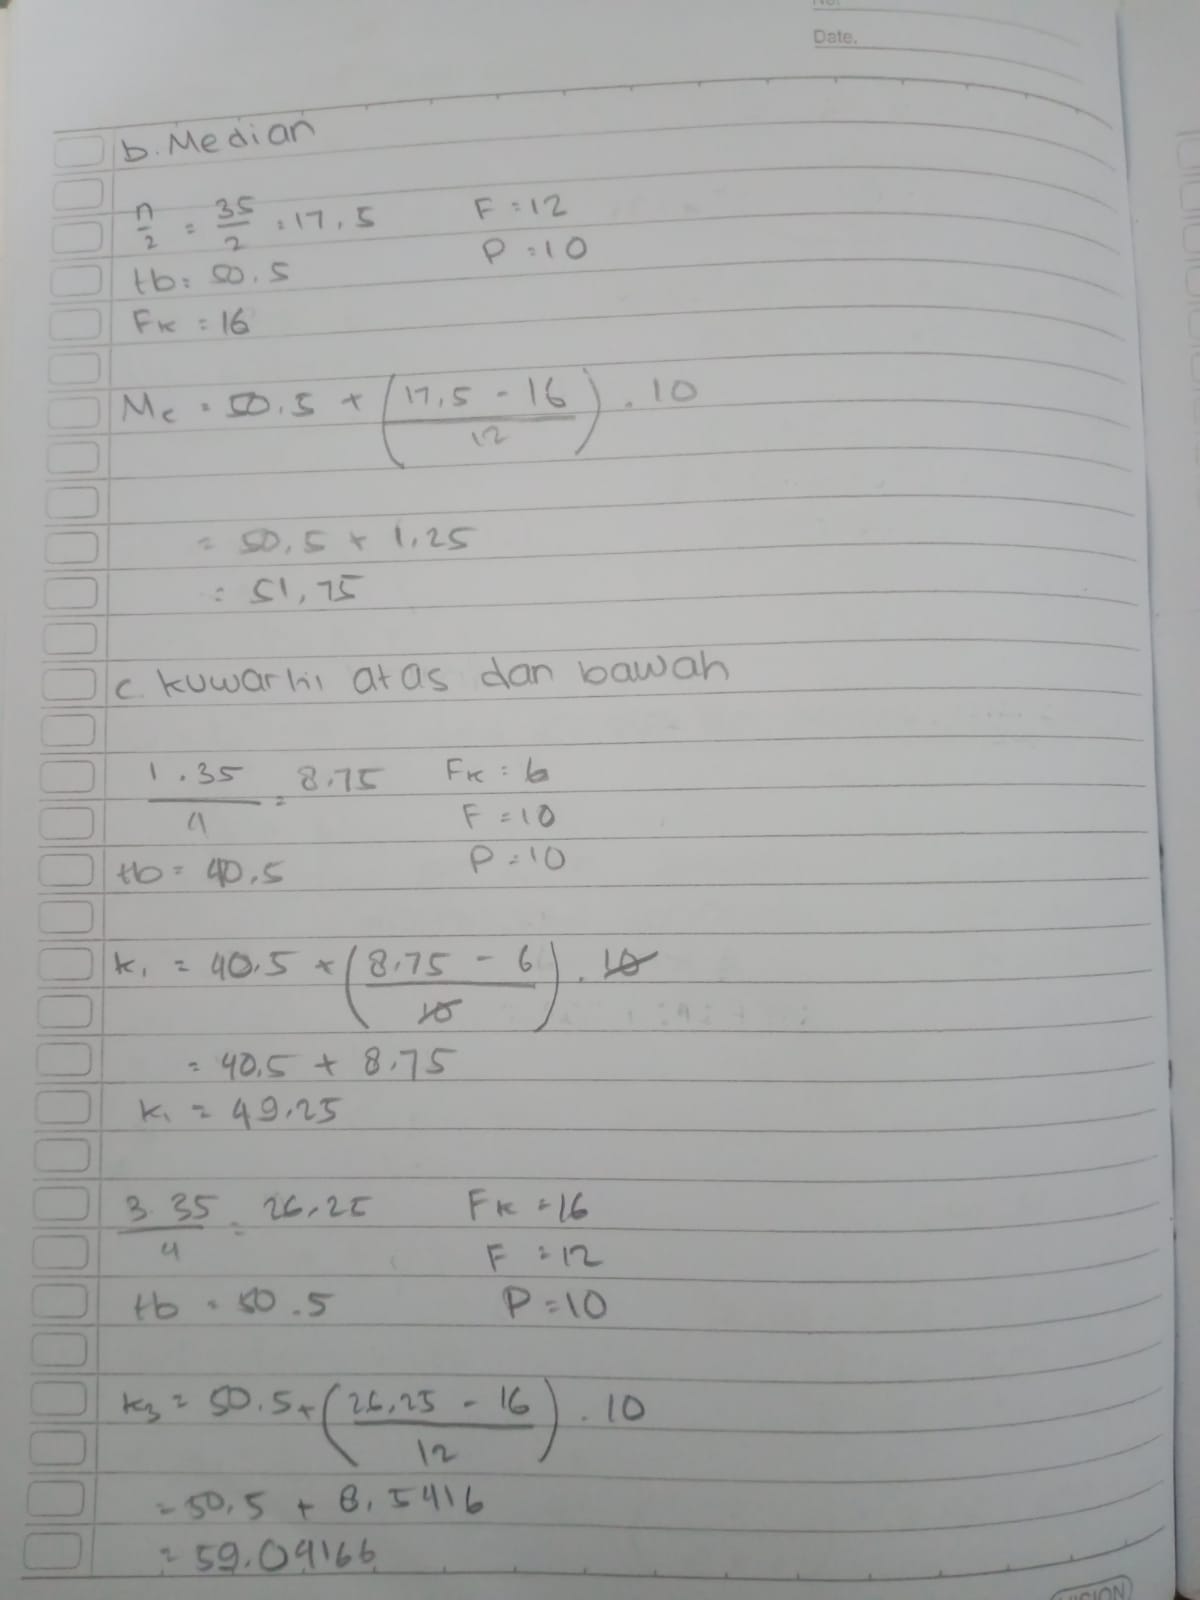 No.
Date.
b. Median
n/2 = 35/2 = 17,5 F = 12
P = 10
tb = 50.5
Fk = 16
Me = 50.5 + (17,5 - 16 / 12) . 10
= 50,5 + 1,25
= 51,75
c. kuwartil atas dan bawah
1 . 35 / 4 = 8.75 Fk = 6
F = 10
tb = 40.5 P = 10
k₁ = 40.5 + (8.75 - 6 / 10) . 10
= 40.5 + 8.75
k₁ = 49.25
3 35 / 4 = 26,25 Fk = 16
F = 12
tb = 50.5 P = 10
k₃ = 50.5 + (26,25 - 16 / 12) . 10
= 50,5 + 8,5416
= 59.04166
VISION